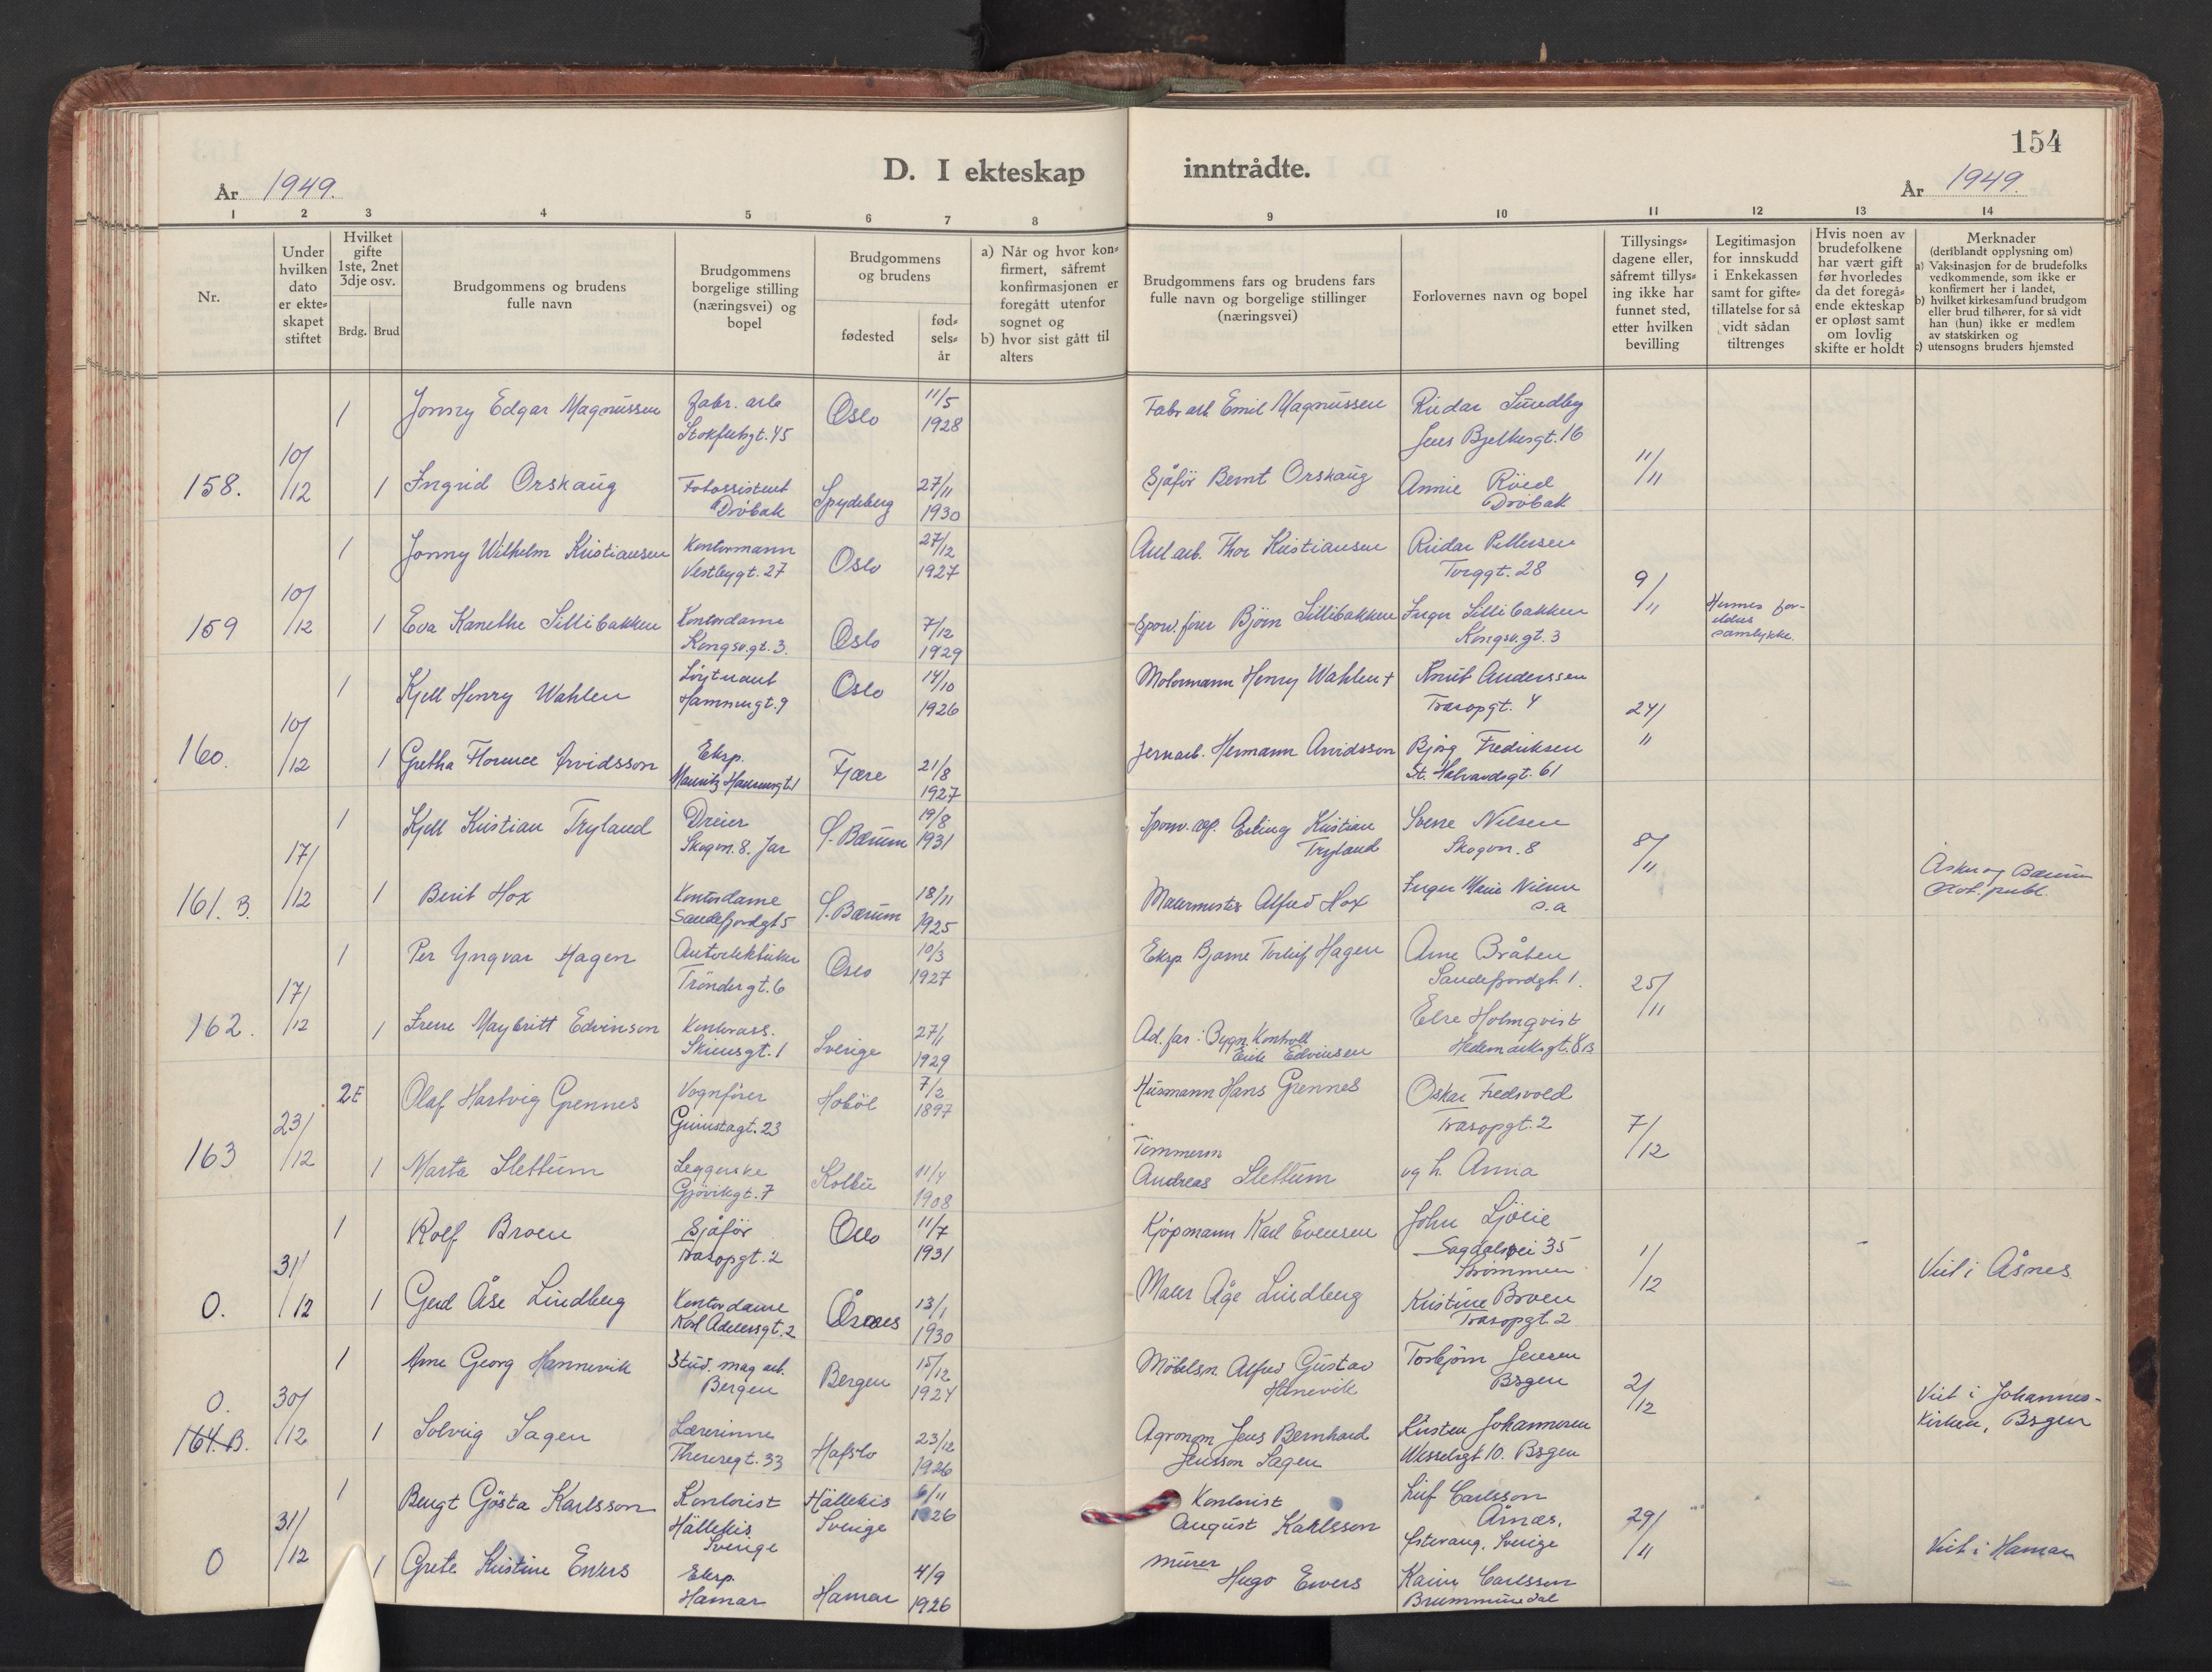 154
D. I ekteskap inntrådte.
År 1949.
År 1949.
1 2 3 4 5 6 7 8 9 10 11 12 13 14
Nr.
Under hvilken dato er ekte= skapet stiftet
Hvilket gifte 1ste, 2net 3dje osv.
Brdg. Brud
Brudgommens og brudens fulle navn
Brudgommens borgelige stilling (næringsvei) og bopel
Brudgommens og brudens
fødested
fød= sels= år
a) Når og hvor kon= firmert, såfremt konfirmasjonen er foregått utenfor sognet og
b) hvor sist gått til alters
Brudgommens fars og brudens fars fulle navn og borgelige stillinger (næringsvei)
Forlovernes navn og bopel
Tillysings= dagene eller, såfremt tillys= ing ikke har funnet sted, etter hvilken bevilling
Legitimasjon for innskudd i Enkekassen samt for gifte= tillatelse for så vidt sådan tiltrenges
Hvis noen av brudefolkene har vært gift før hvorledes da det foregå= ende ekteskap er opløst samt om lovlig skifte er holdt
Merknader
(deriblandt opplysning om)
a) Vaksinasjon for de brudefolks vedkommende, som ikke er konfirmert her i landet,
b) hvilket kirkesamfund brudgom eller brud tilhører, for så vidt han (hun) ikke er medlem av statskirken og
c) utensogns bruders hjemsted
1 Jonny Edgar Magnussen Fabr. arb. Oslo 11/5 Fabr arb Emil Magnussen Reidar Sundby
Stokfletsgt. 45 1928 Jens Bjelkesgt. 16
158. 10/12 1 Ingrid Orskaug Fotoassistent Spydeberg 27/11 Sjåfør Bernt Orskaug Annie Röed 11/11
Dröbak 1930 Dröbak
1 Jonny Wilhelm Kristiansen Kontormann Oslo 27/12 Anl arb. Thor Kristiansen Reidar Pettersen
Vestbygt. 27 1927 Torggt. 28
159 10/12 1 Eva Kanethe Sillibakken Kontordame Oslo 7/12 Sporv. fører Björn Sillibakken Inger Sillibakken 9/11 Hennes for-
Kongsv.gt. 3. 1929 Kongsv.gt. 3 eldres
samtykke.
1 Kjell Henry Wahlen Löytnant Oslo 14/10 Motormann Henry Wahlen + Knut Anderssen
Hammergt. 9 1926 Trasopgt. 4
160. 10/12 1 Gretha Florence Arvidsson Eksp. Fjære 21/8 Jernarb. Hermann Arvidsson Bjørg Fredriksen 24/11
Mauritz Hansensgt. 1 1927 St. Halvardsgt. 61
1 Kjell Kristian Tryland Dreier S. Bærum 19/8 Sporv. Erling Kristian Sverre Nilsen
Skogvn. 8. Jar 1931 Tryland Skogvn. 8
161. B. 17/12 1 Berit Hox Kontordame S. Bærum 18/11 Malermester Alfred Hox Inger Marie Nilsen 8/11 Asker og Bærum
Sandefjordgt 5 1925 s. a Not. publ.
1 Per Yngvar Hagen Autoelektriker Oslo 10/3 Eksp Bjarne Torleif Hagen Arne Bråten
Tröndergt. 6 1927 Sandefjordgt. 1.
162. 17/12 1 Irene Maybritt Edvinson Kontorass. Sverige 27/1 Ad. far: Bygn. Kontroll Else Holmqvist 25/11
Skiensgt. 1 1929 Erik Edvinsen Hedemarksgt. 8B
2E Olaf Hartvig Grennes Vognfører Hobøl 7/2 Husmann Hans Grennes Oskar Fredsvold
Grimstagt. 23 1897 Trasopgt. 2
163 23/12 1 Marta Slettum Leggerske Kolbu 11/4 Tömmerm Andreas Slettum og h. Anna 7/12
Gjövikgt. 7 1908
1 Rolf Broen Sjåför Oslo 11/7 Kjøpmann Karl Evensen John LjöLie
Trasopgt. 2 1931 Sagdalsvei 35
Strömmen
0. 31/12 1 Gerd Åse Lindberg Kontordame Åsnes 13/1 Maler Åge Lindberg Kristine Broen 1/12 Viet i Åsnes
Karl Adelersgt. 2 1930 Trasopgt. 2
1 Arne Georg Hannevik Stud. mag art. Bergen 15/12 Möbelsn. Alfred Gustav Torbjørn Jensen
Bergen 1924 Hanevik Brgen
0. 164. B. 30/12 1 Solveig Sagen Lærerinne Hafslo 23/12 Agronom Jens Bernhard Kirsten Johannesen 2/12 Viet i Johannes-
Theresegt. 33 1926 Jensson Sagen Wesselsgt 10. Brgen kirken, Brgen
1 Bengt Gösta Karlsson Kontorist Hällekis 6/11 Kontorist Leif Carlsson
Hällekis Sverige 1926 August Karlsson Årnäs,
Sverige Österäng. Sverige
0 31/12 1 Grete Kristine Ewers Eksp. Hamar 4/9 Murer Hugo Ewers Karin Carlsson 29/11 Viet i Hamar
Hamar 1926 Brummundal